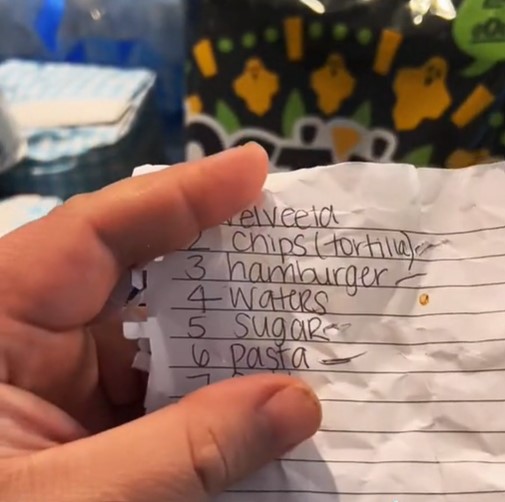 elveeta
2 chips (tortilla)
3 hamburger
4 waters
5 sugar
6 pasta
7